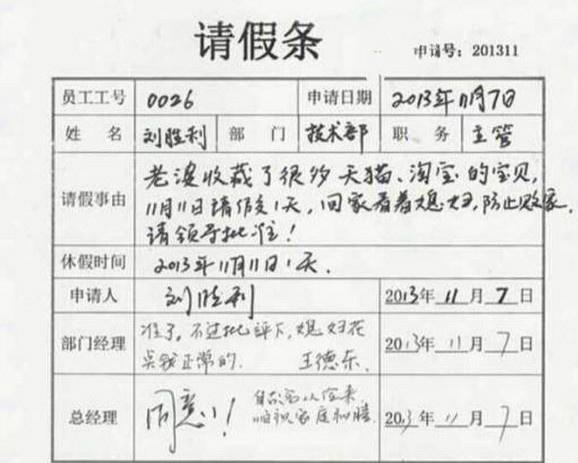 请假条
申请号：201311
员工工号 0026 申请日期 2013年11月7日
姓名 刘胜利 部门 技术部 职务 主管
请假事由
老婆收藏了很多天猫、淘宝的宝贝，
11月11日请假1天，回家看着媳妇，防止败家，
请领导批准！
休假时间 2013年11月11日1天.
申请人 刘胜利 2013年11月7日
部门经理
准了，不过批评下，媳妇花
吴钱正常的. 王德乐.
2013年11月7日
总经理
同意！
家庭和睦.
2013年11月7日